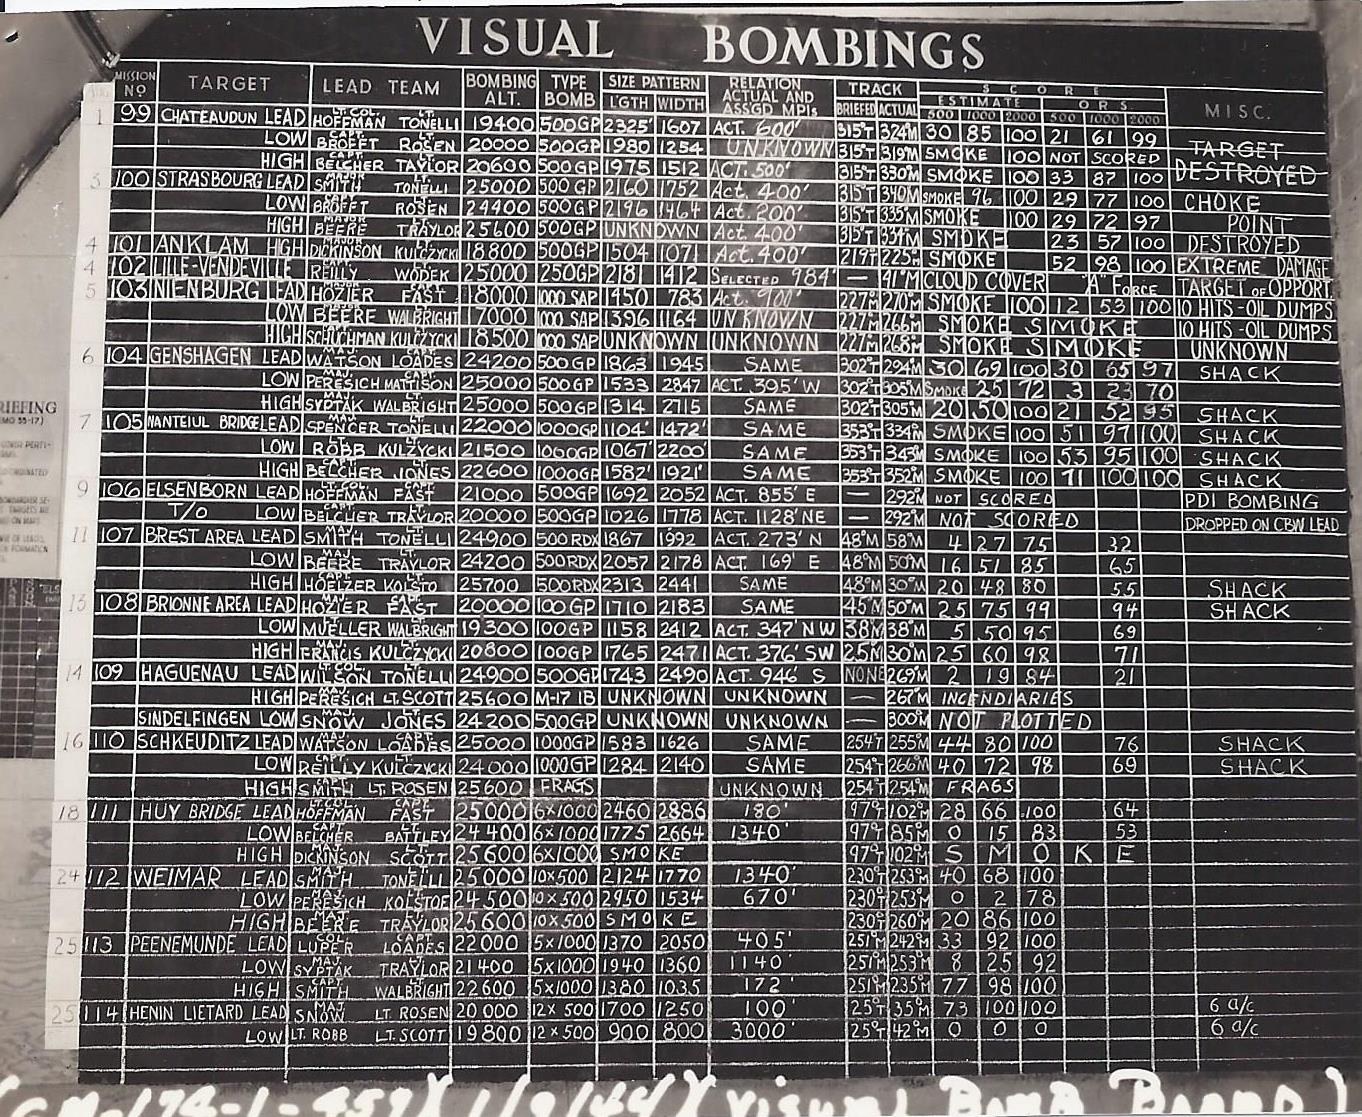 VISUAL BOMBINGS
MISSION Nº TARGET LEAD TEAM BOMBING ALT. TYPE BOMB SIZE PATTERN L'GTH WIDTH RELATION ACTUAL AND ASSGD MPIs TRACK BRIEFED ACTUAL SCORE ESTIMATE 500 1000 2000 ORS 500 1000 2000 MISC.
1 99 CHATEAUDUN LEAD LT. COL. HOFFMAN LT. TONELLI 19400 500GP 2325' 1607 ACT. 600' 315°T 324°M 30 85 100 21 61 99
LOW CAPT. BROFFT LT. ROSEN 20000 500GP 1980 1254 UNKNOWN 315°T 319°M SMOKE 100 NOT SCORED TARGET
HIGH CAPT. BELCHER TAYLOR 20600 500GP 1975 1512 ACT. 500' 315°T 330°M SMOKE 100 33 87 100 DESTROYED
3 100 STRASBOURG LEAD MAJOR SMITH LT. TONELLI 25000 500 GP 2160 1752 Act. 400' 315°T 340°M SMOKE 96 100 29 77 100 CHOKE
LOW CAPT. BROFFT LT. ROSEN 24400 500GP 2196 1464 Act. 200' 315°T 335°M SMOKE 100 29 72 97 POINT
HIGH MAJOR BEERE LT. TRAYLOR 25600 500GP UNKNOWN Act. 400' 315°T 334°M SMOKE 23 57 100 DESTROYED
4 101 ANKLAM HIGH MAJOR DICKINSON LT. KULCZYCKI 18800 500GP 1504 1071 Act. 400' 219°T 225°M SMOKE 52 98 100 EXTREME DAMAGE
4 102 LILLE-VENDEVILLE CAPT. REILLY LT. WODEK 25000 250GP 2181 1412 SELECTED 984' — 41°M CLOUD COVER "A" FORCE TARGET OF OPPORT
5 103 NIENBURG LEAD HOZIER FAST 18000 1000 SAP 1450 783 Act. 900' 227°M 270°M SMOKE 100 12 53 100 10 HITS - OIL DUMPS
LOW BEERE WALBRIGHT 17000 1000 SAP 1396 1164 UNKNOWN 227°M 266°M SMOKE SMOKE 10 HITS - OIL DUMPS
HIGH SCHUCHMAN KULCZYCKI 18500 1000 SAP UNKNOWN UNKNOWN 227°M 268°M SMOKE SMOKE UNKNOWN
6 104 GENSHAGEN LEAD WATSON LOADES 24200 500GP 1863 1945 SAME 302°T 294°M 30 69 100 30 65 97 SHACK
LOW MAJ. PERESICH MATTISON 25000 500GP 1533 2847 ACT. 395' W 302°T 305°M SMOKE 25 72 3 23 70
HIGH MAJ. SYPTAK WALBRIGHT 25000 500GP 1314 2715 SAME 302°T 305°M 20 50 100 21 52 95 SHACK
7 105 NANTEIUL BRIDGE LEAD SPENCER TONELLI 22000 1000GP 1104' 1472' SAME 353°T 334°M SMOKE 100 51 97 100 SHACK
LOW LT. ROBB LT. KULZYCKI 21500 1000GP 1067 2200 SAME 353°T 343°M SMOKE 100 53 95 100 SHACK
HIGH BELCHER JONES 22600 1000GP 1582' 1921' SAME 353°T 352°M SMOKE 100 71 100 100 SHACK
9 106 ELSENBORN LEAD LT. COL. HOFFMAN CAPT. FAST 21000 500GP 1692 2052 ACT. 855' E — 292°M NOT SCORED PDI BOMBING
T/O LOW BELCHER TRAYLOR 20000 500GP 1026 1778 ACT. 1128' NE — 292°M NOT SCORED DROPPED ON CBW LEAD
11 107 BREST AREA LEAD SMITH TONELLI 24900 500 RDX 1867 1992 ACT. 273' N 48°M 58°M 4 27 75 32
LOW MAJ. BEERE LT. TRAYLOR 24200 500RDX 2057 2178 ACT. 169' E 48°M 50°M 16 51 85 65
HIGH CAPT. HOELZER LT. KOLSTO 25700 500RDX 2313 2441 SAME 48°M 30°M 20 48 80 55 SHACK
13 108 BRIONNE AREA LEAD MAJ. HOZIER CAPT. FAST 20000 100 GP 1710 2183 SAME 45°M 50°M 25 75 99 94 SHACK
LOW MUELLER WALBRIGHT 19300 100GP 1158 2412 ACT. 347' NW 38°M 38°M 5 50 95 69
HIGH FRANCIS KULCZYCKI 20800 100GP 1765 2471 ACT. 376' SW 25M 30°M 25 60 98 71
14 109 HAGUENAU LEAD LT. COL. WILSON LT. TONELLI 24900 500GP 1743 2490 ACT. 946 S NONE 269°M 2 19 84 21
HIGH MAJ. PERESICH LT. SCOTT 25600 M-17 IB UNKNOWN UNKNOWN — 267°M INCENDIARIES
SINDELFINGEN LOW MAJ. SNOW LT. JONES 24200 500GP UNKNOWN UNKNOWN — 300°M NOT PLOTTED
16 110 SCHKEUDITZ LEAD MAJ. WATSON CAPT. LOADES 25000 1000GP 1583 1626 SAME 254°T 255°M 44 80 100 76 SHACK
LOW CAPT. REILLY LT. KULCZYCKI 24000 1000GP 1284 2140 SAME 254° 266°M 40 72 98 69 SHACK
HIGH CAPT. SMITH LT. ROSEN 25600 FRAGS UNKNOWN 254°T 254°M FRAGS
18 111 HUY BRIDGE LEAD LT. COL. HOFFMAN CAPT. FAST 25000 6×1000 2460 2886 180' 97°T 102°M 28 66 100 64
LOW CAPT. BELCHER LT. BATTLEY 24400 6×1000 1775 2664 1340' 97°T 85°M 0 15 83 53
HIGH MAJ. DICKINSON LT. SCOTT 25600 6×1000 SMOKE 97°T 102°M SMOKE
24 112 WEIMAR LEAD MAJ. SMITH LT. TONELLI 25000 10×500 2124 1770 1340' 230°T 253°M 40 68 100
LOW MAJ. PERESICH LT. KOLSTOE 24500 10×500 2950 1534 670' 230°T 253°M 0 2 78
HIGH MAJ. BEERE LT. TRAYLOR 25600 10×500 SMOKE 230°T 260°M 20 86 100
25 113 PEENEMUNDE LEAD COL. LUPER CAPT. LOADES 22000 5×1000 1370 2050 405' 251°M 242°M 33 92 100
LOW MAJ. SYPTAK LT. TRAYLOR 21400 5×1000 1940 1360 1140' 251°M 253°M 8 25 92
HIGH CAPT. SMITH LT. WALBRIGHT 22600 5×1000 1380 1035 172' 251°M 235°M 77 98 100
25 114 HENIN LIETARD LEAD MAJ. SNOW LT. ROSEN 20000 12×500 1700 1250 100' 25°T 35°M 73 100 100 6 a/c
LOW LT. ROBB LT. SCOTT 19800 12×500 900 800 3000' 25°T 42°M 0 0 0 6 a/c
(GM-174-1-459)(1/9/44)(Visual Bomb Board)